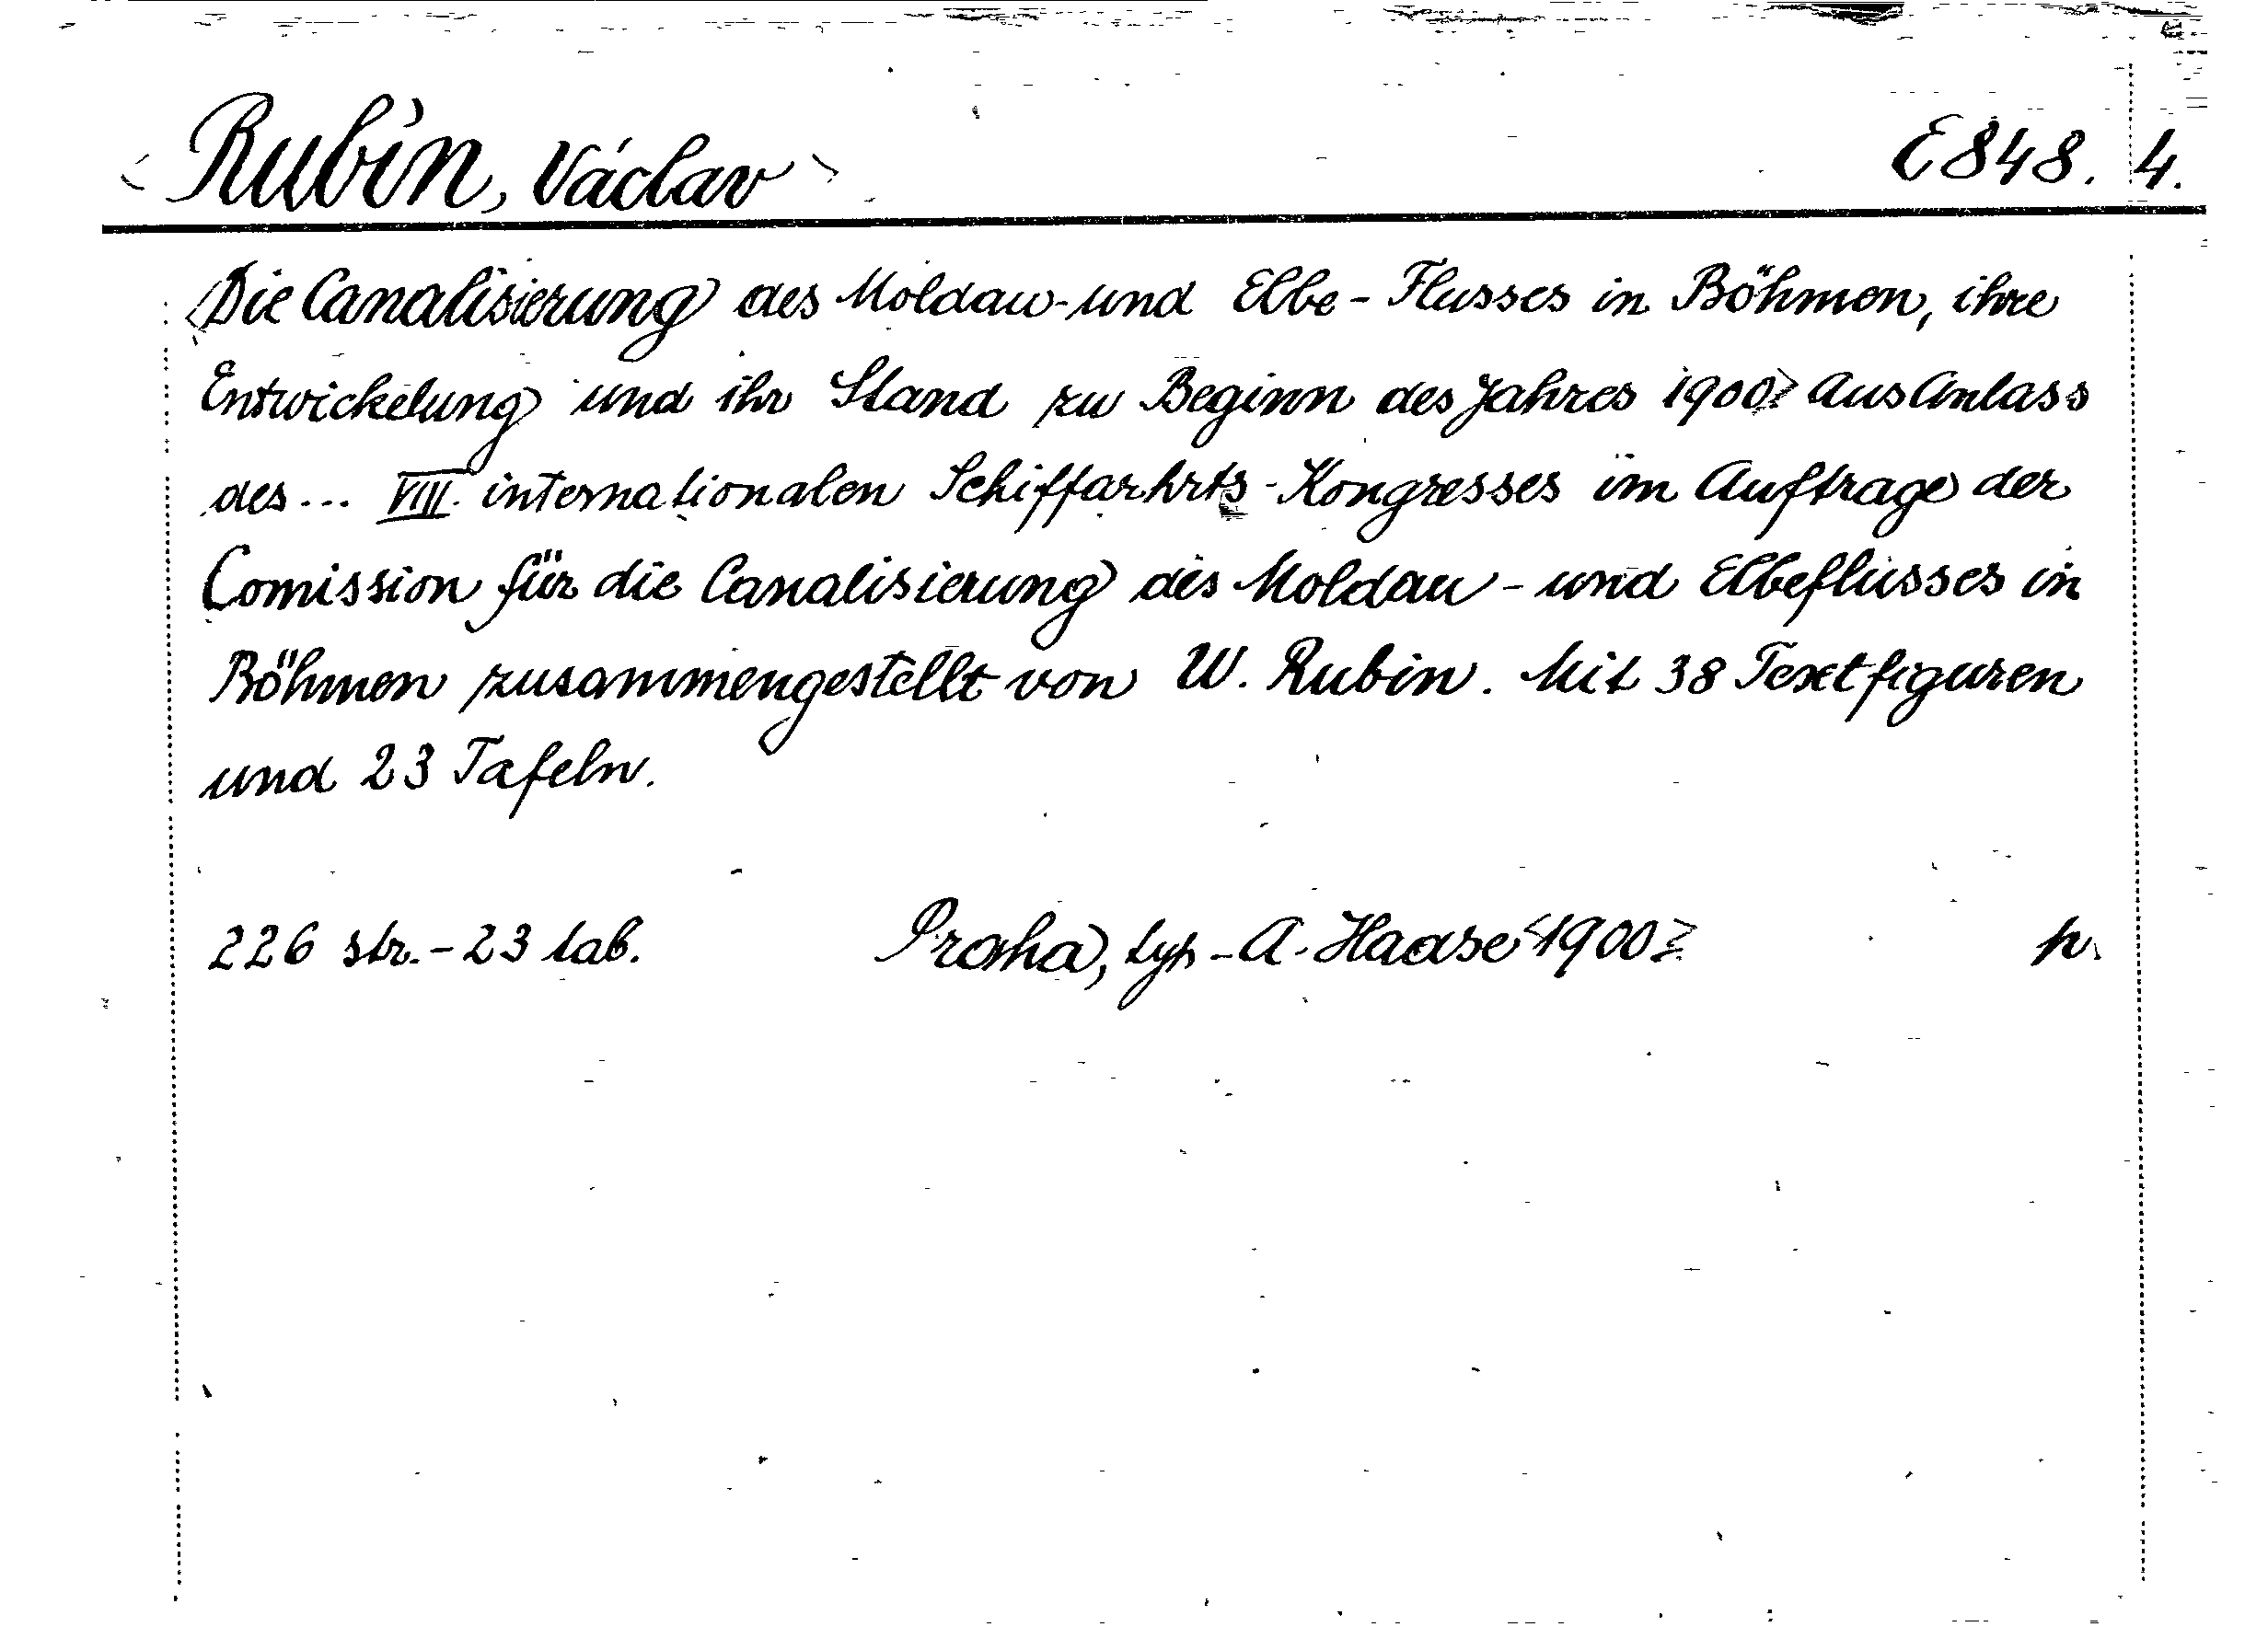 <Rubín, Václav> E 848. 4.
<Die Canalisierung des Moldau- und Elbe-Flusses in Böhmen, ihre
Entwickelung und ihr Stand zu Beginn des Jahres 1900> Aus Anlass
des... VIII. internationalen Schiffarhrts-Kongresses im Auftrage der
Comission für die Canalisierung des Moldau- und Elbeflusses in
Böhmen zusammengestellt von W. Rubin. Mit 38 Textfiguren
und 23 Tafeln.
226 str. - 23 tab. Praha, typ - A. Haase <1900> p.